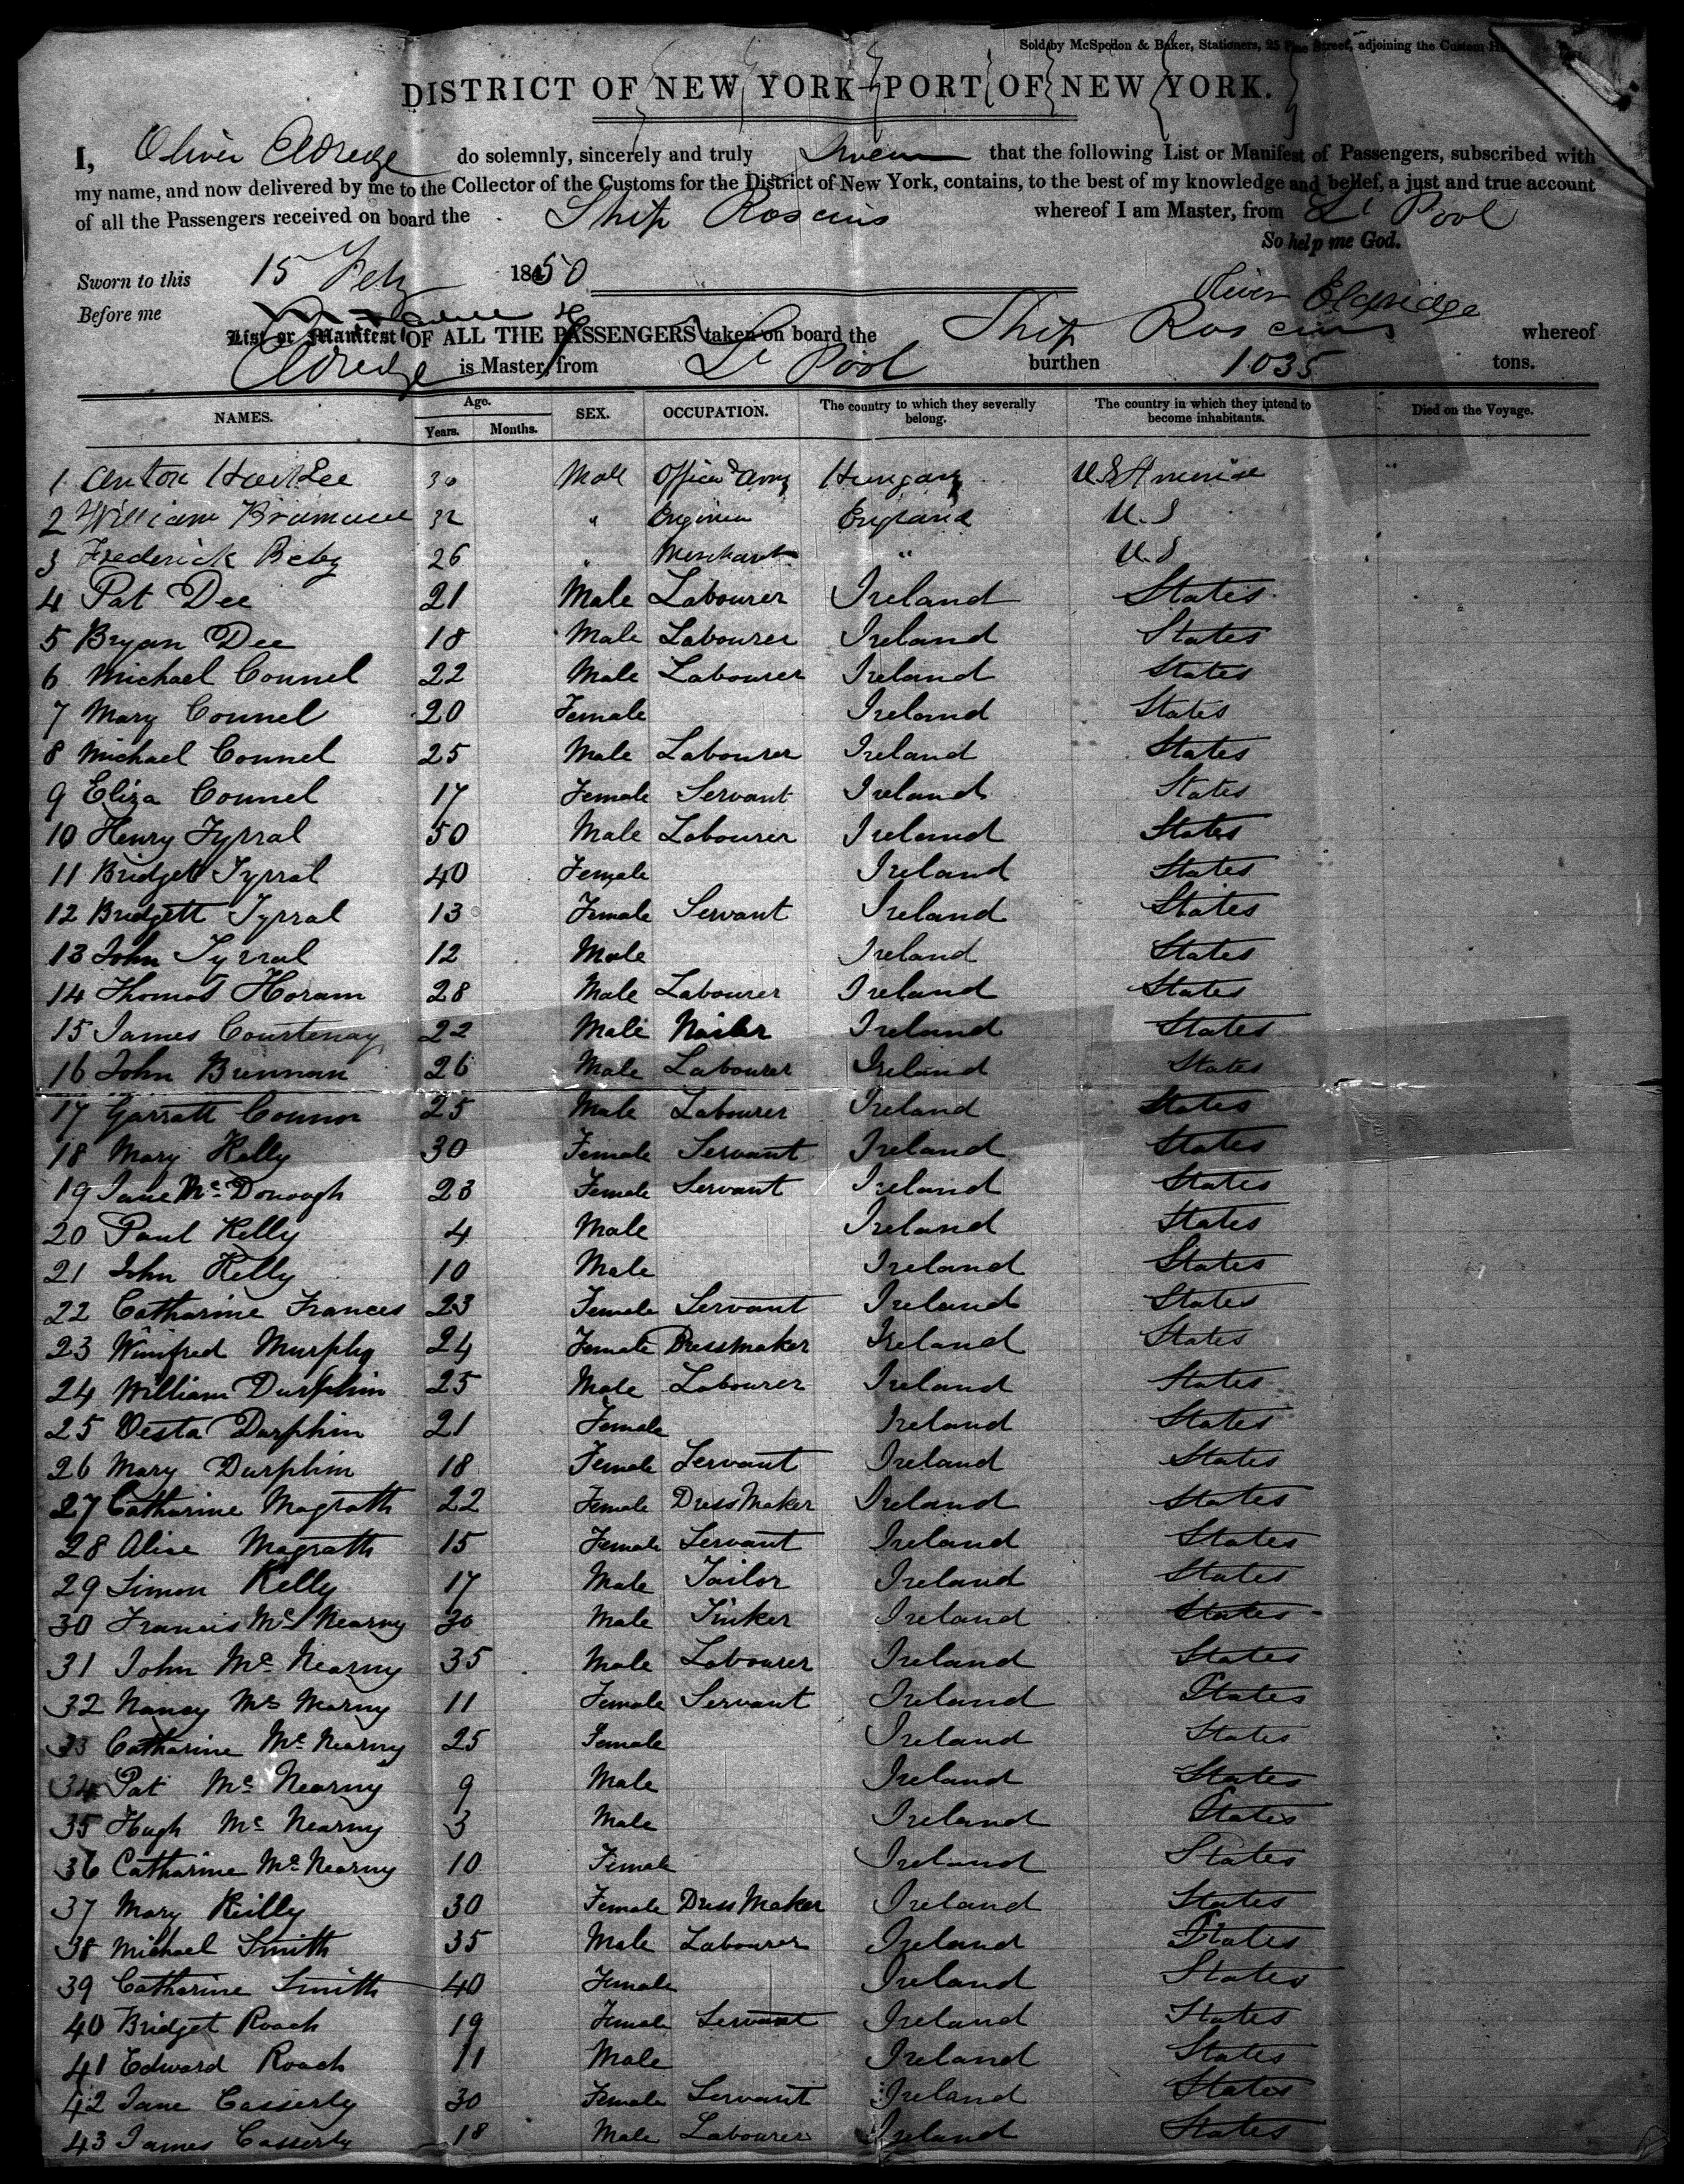 Sold by McSpedon & Baker, Stationers, 25 Pine Street, adjoining the Custom
DISTRICT OF NEW YORK - PORT OF NEW YORK.
I, Oliver Eldredge do solemnly, sincerely and truly Swear that the following List or Manifest of Passengers, subscribed with
my name, and now delivered by me to the Collector of the Customs for the District of New York, contains, to the best of my knowledge and belief, a just and true account
of all the Passengers received on board the Ship Roscius whereof I am Master, from L' Pool
So help me God.
Sworn to this 15 Feby 1850
Before me Oliver Eldridge
List or Manifest OF ALL THE PASSENGERS taken on board the Ship Roscius whereof
Eldredge is Master, from L' Pool burthen 1035 tons.
NAMES. Age. Years. Months. SEX. OCCUPATION. The country to which they severally belong. The country in which they intend to become inhabitants. Died on the Voyage.
1 Anton 30 Male Officer Army Hungary U.S America
2 William 32 " Engineer England U.S
3 Frederick 26 " Merchant " U.S
4 Pat Dee 21 Male Labourer Ireland States
5 Bryan Dee 18 Male Labourer Ireland States
6 Michael Connel 22 Male Labourer Ireland States
7 Mary Connel 20 Female Ireland States
8 Michael Connel 25 Male Labourer Ireland States
9 Eliza Connel 17 Female Servant Ireland States
10 Henry Tyrral 50 Male Labourer Ireland States
11 Bridget Tyrral 40 Female Ireland States
12 Bridgett Tyrral 13 Female Servant Ireland States
13 John Tyrral 12 Male Ireland States
14 Thomas Horam 28 Male Labourer Ireland States
15 James Courtenay 22 Male Nailer Ireland States
16 John Brennan 26 Male Labourer Ireland States
17 Garratt Connor 25 Male Labourer Ireland States
18 Mary Kelly 30 Female Servant Ireland States
19 Jane Mc Donough 23 Female Servant Ireland States
20 Paul Kelly 4 Male Ireland States
21 John Kelly 10 Male Ireland States
22 Catharine Frances 23 Female Servant Ireland States
23 Winifred Murphy 24 Female Dressmaker Ireland States
24 William Durphin 25 Male Labourer Ireland States
25 Vesta Durphin 21 Female Ireland States
26 Mary Durphin 18 Female Servant Ireland States
27 Catharine Magrath 22 Female Dress Maker Ireland States
28 Alice Magrath 15 Female Servant Ireland States
29 Simon Kelly 17 Male Tailor Ireland States
30 Francis Mc Nearny 30 Male Tinker Ireland States
31 John Mc Nearny 35 Male Labourer Ireland States
32 Nancy Mc Nearny 11 Female Servant Ireland States
33 Catharine Mc Nearny 25 Female Ireland States
34 Pat Mc Nearny 9 Male Ireland States
35 Hugh Mc Nearny 3 Male Ireland States
36 Catharine Mc Nearny 10 Female Ireland States
37 Mary Reilly 30 Female Dress Maker Ireland States
38 Michael Smith 35 Male Labourer Ireland States
39 Catharine Smith 40 Female Ireland States
40 Bridget Roach 19 Female Servant Ireland States
41 Edward Roach 11 Male Ireland States
42 Jane Casserly 30 Female Servant Ireland States
43 James Casserly 18 Male Labourer Ireland States